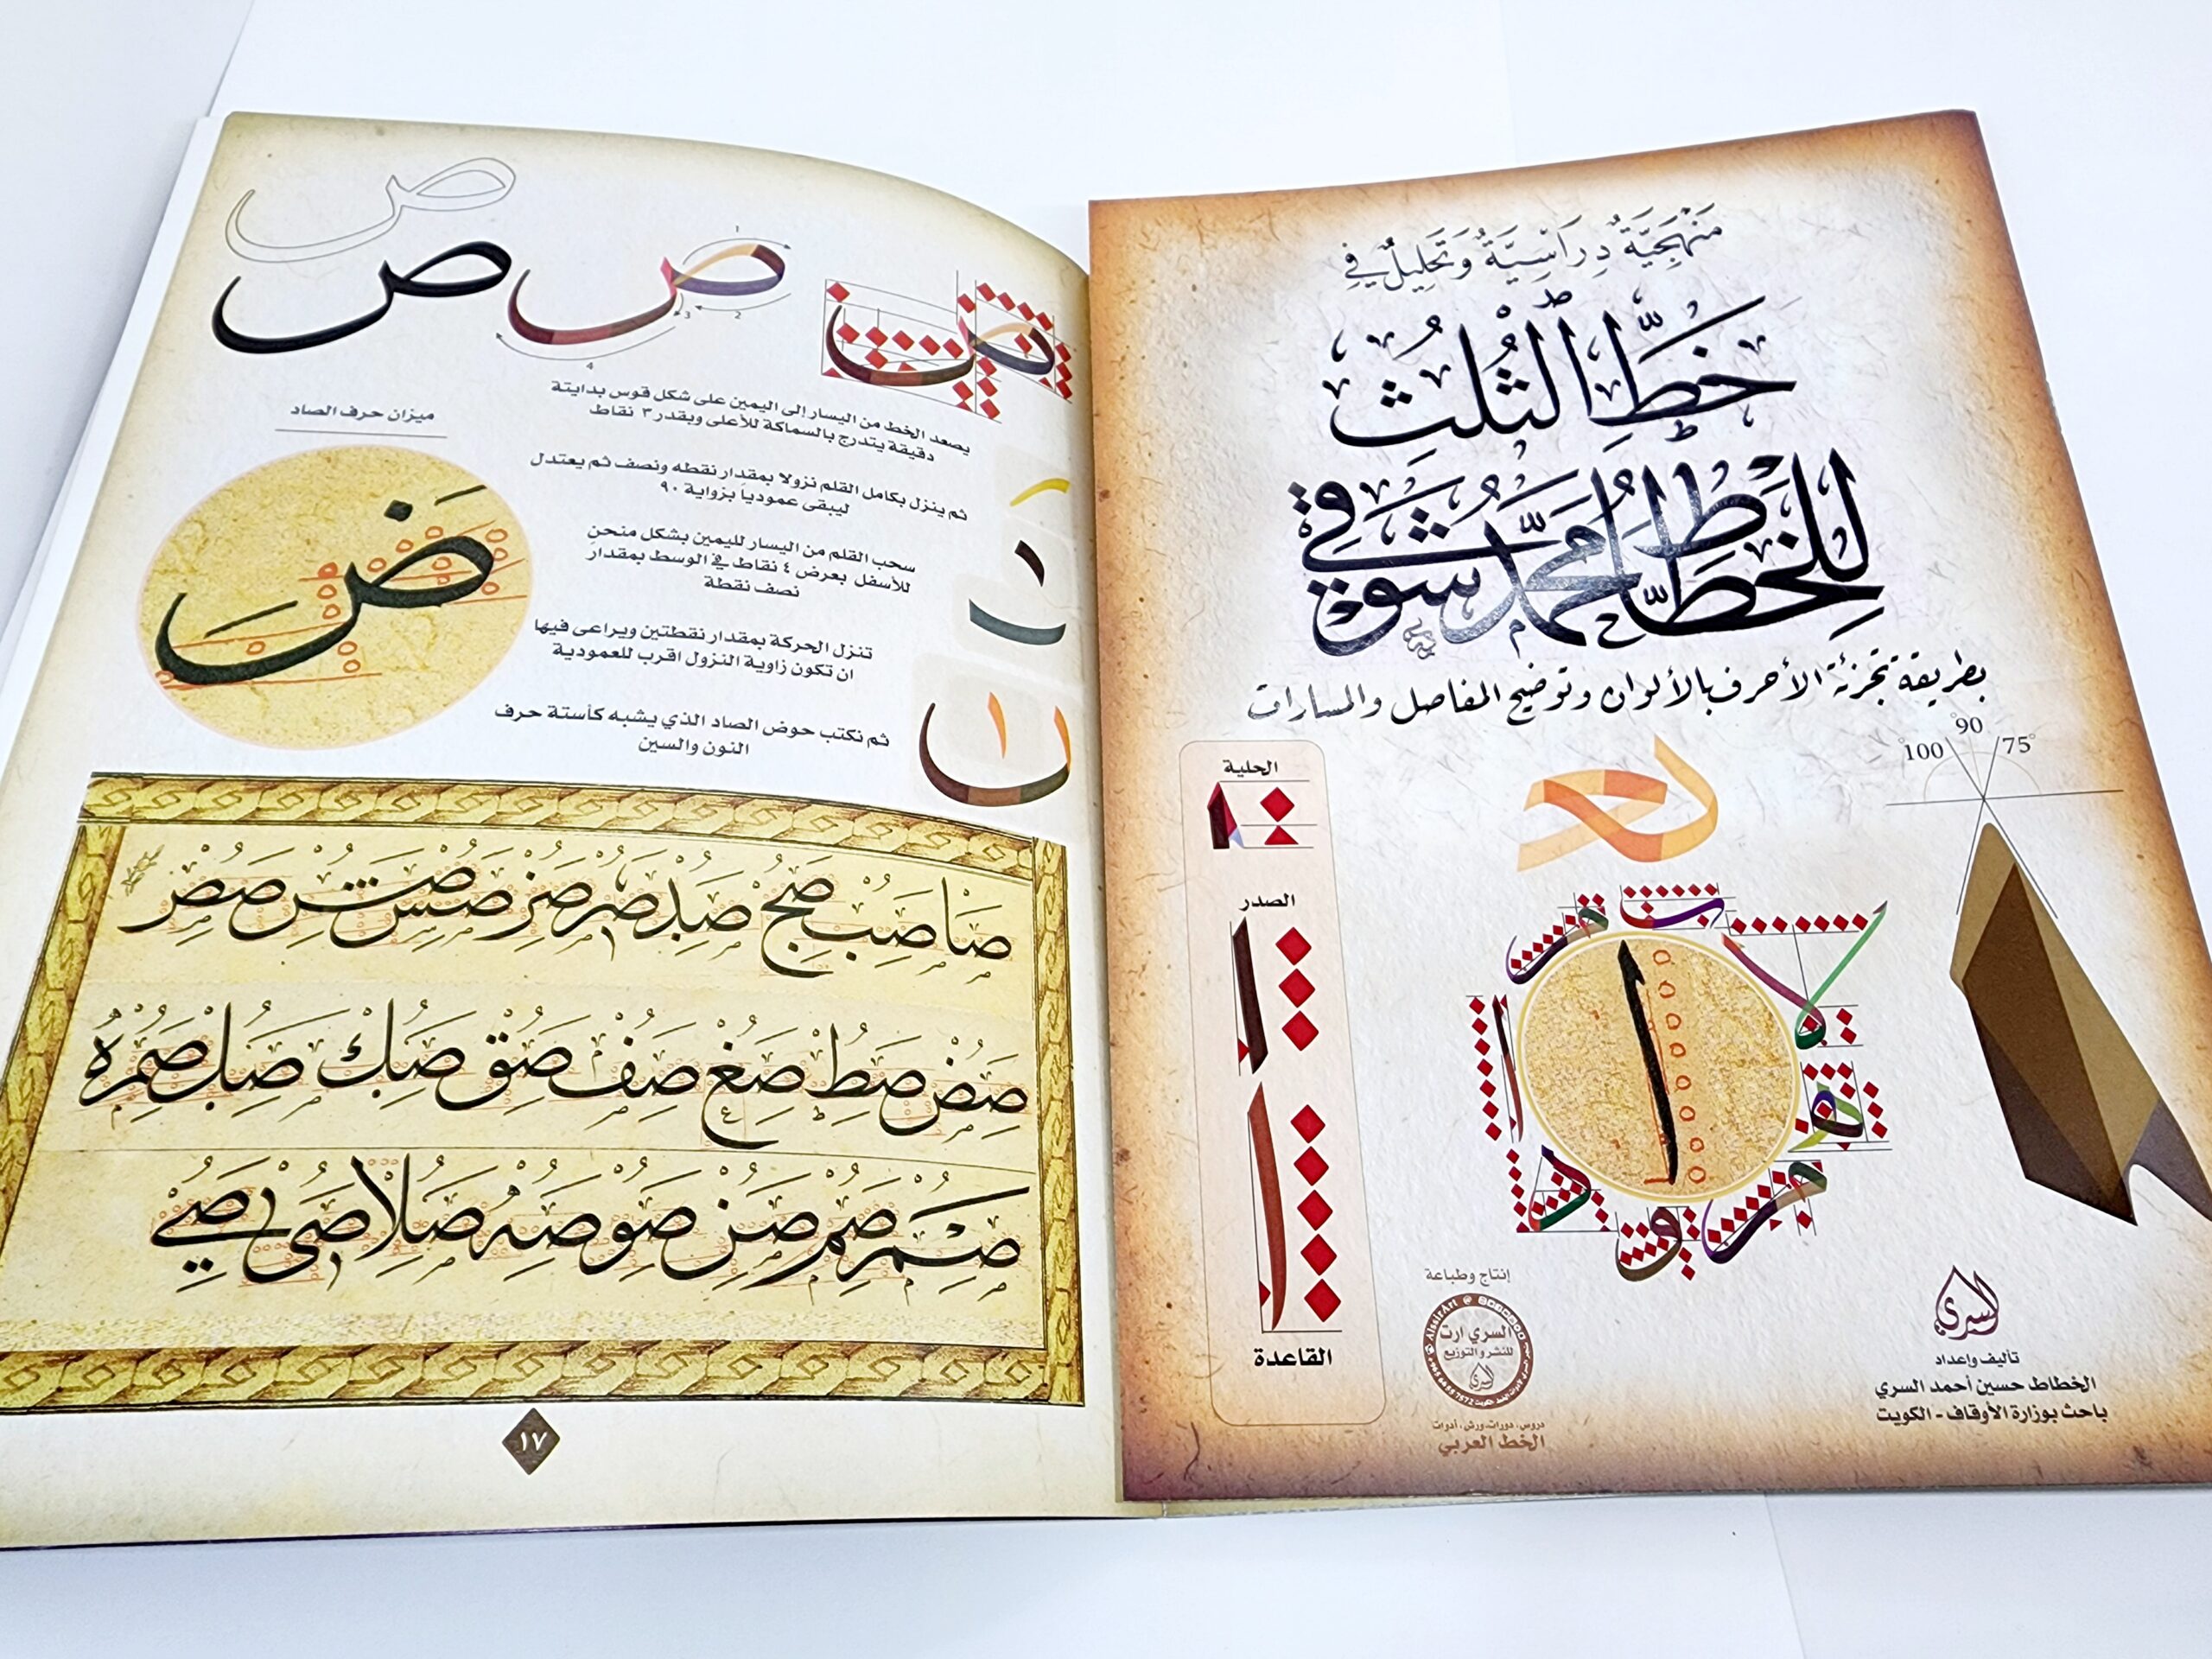 مَنْهَجِيَّةٌ دِرَاسِيَّةٌ وَتَحْلِيلٌ فِي
خَطِّ الثُّلُثِ
لِلْخَطَّاطِ مُحَمَّد شَوْقِي
بطريقة تجزئة الأحرف بالألوان وتوضيح المفاصل والمسارات
الحلية
100° 90° 75°
الصدر
القاعدة
إنتاج وطباعة
AlssirArt
السري ارت
للنشر والتوزيع
دروس، دورات، ورش، أدوات
الخط العربي
السري
تأليف وإعداد
الخطاط حسين أحمد السري
باحث بوزارة الأوقاف - الكويت
ص
ص ص ص
1
2
3
4
يصعد الخط من اليسار إلى اليمين على شكل قوس بدايتة
دقيقة يتدرج بالسماكة للأعلى وبقدر ٣ نقاط
ميزان حرف الصاد
ض
ثم ينزل بكامل القلم نزولا بمقدار نقطه ونصف ثم يعتدل
ليبقى عمودياً بزواية ٩٠
سحب القلم من اليسار لليمين بشكل منحنٍ
للأسفل بعرض ٤ نقاط في الوسط بمقدار
نصف نقطة
تنزل الحركة بمقدار نقطتين ويراعى فيها
ان تكون زاوية النزول اقرب للعمودية
ثم نكتب حوض الصاد الذي يشبه كأستة حرف
النون والسين
صا صب صج صد صر صز صس صش صص
صض صط صع صف صق صك صل صم
صم صم صن صو صه صلا صى صي
١٧